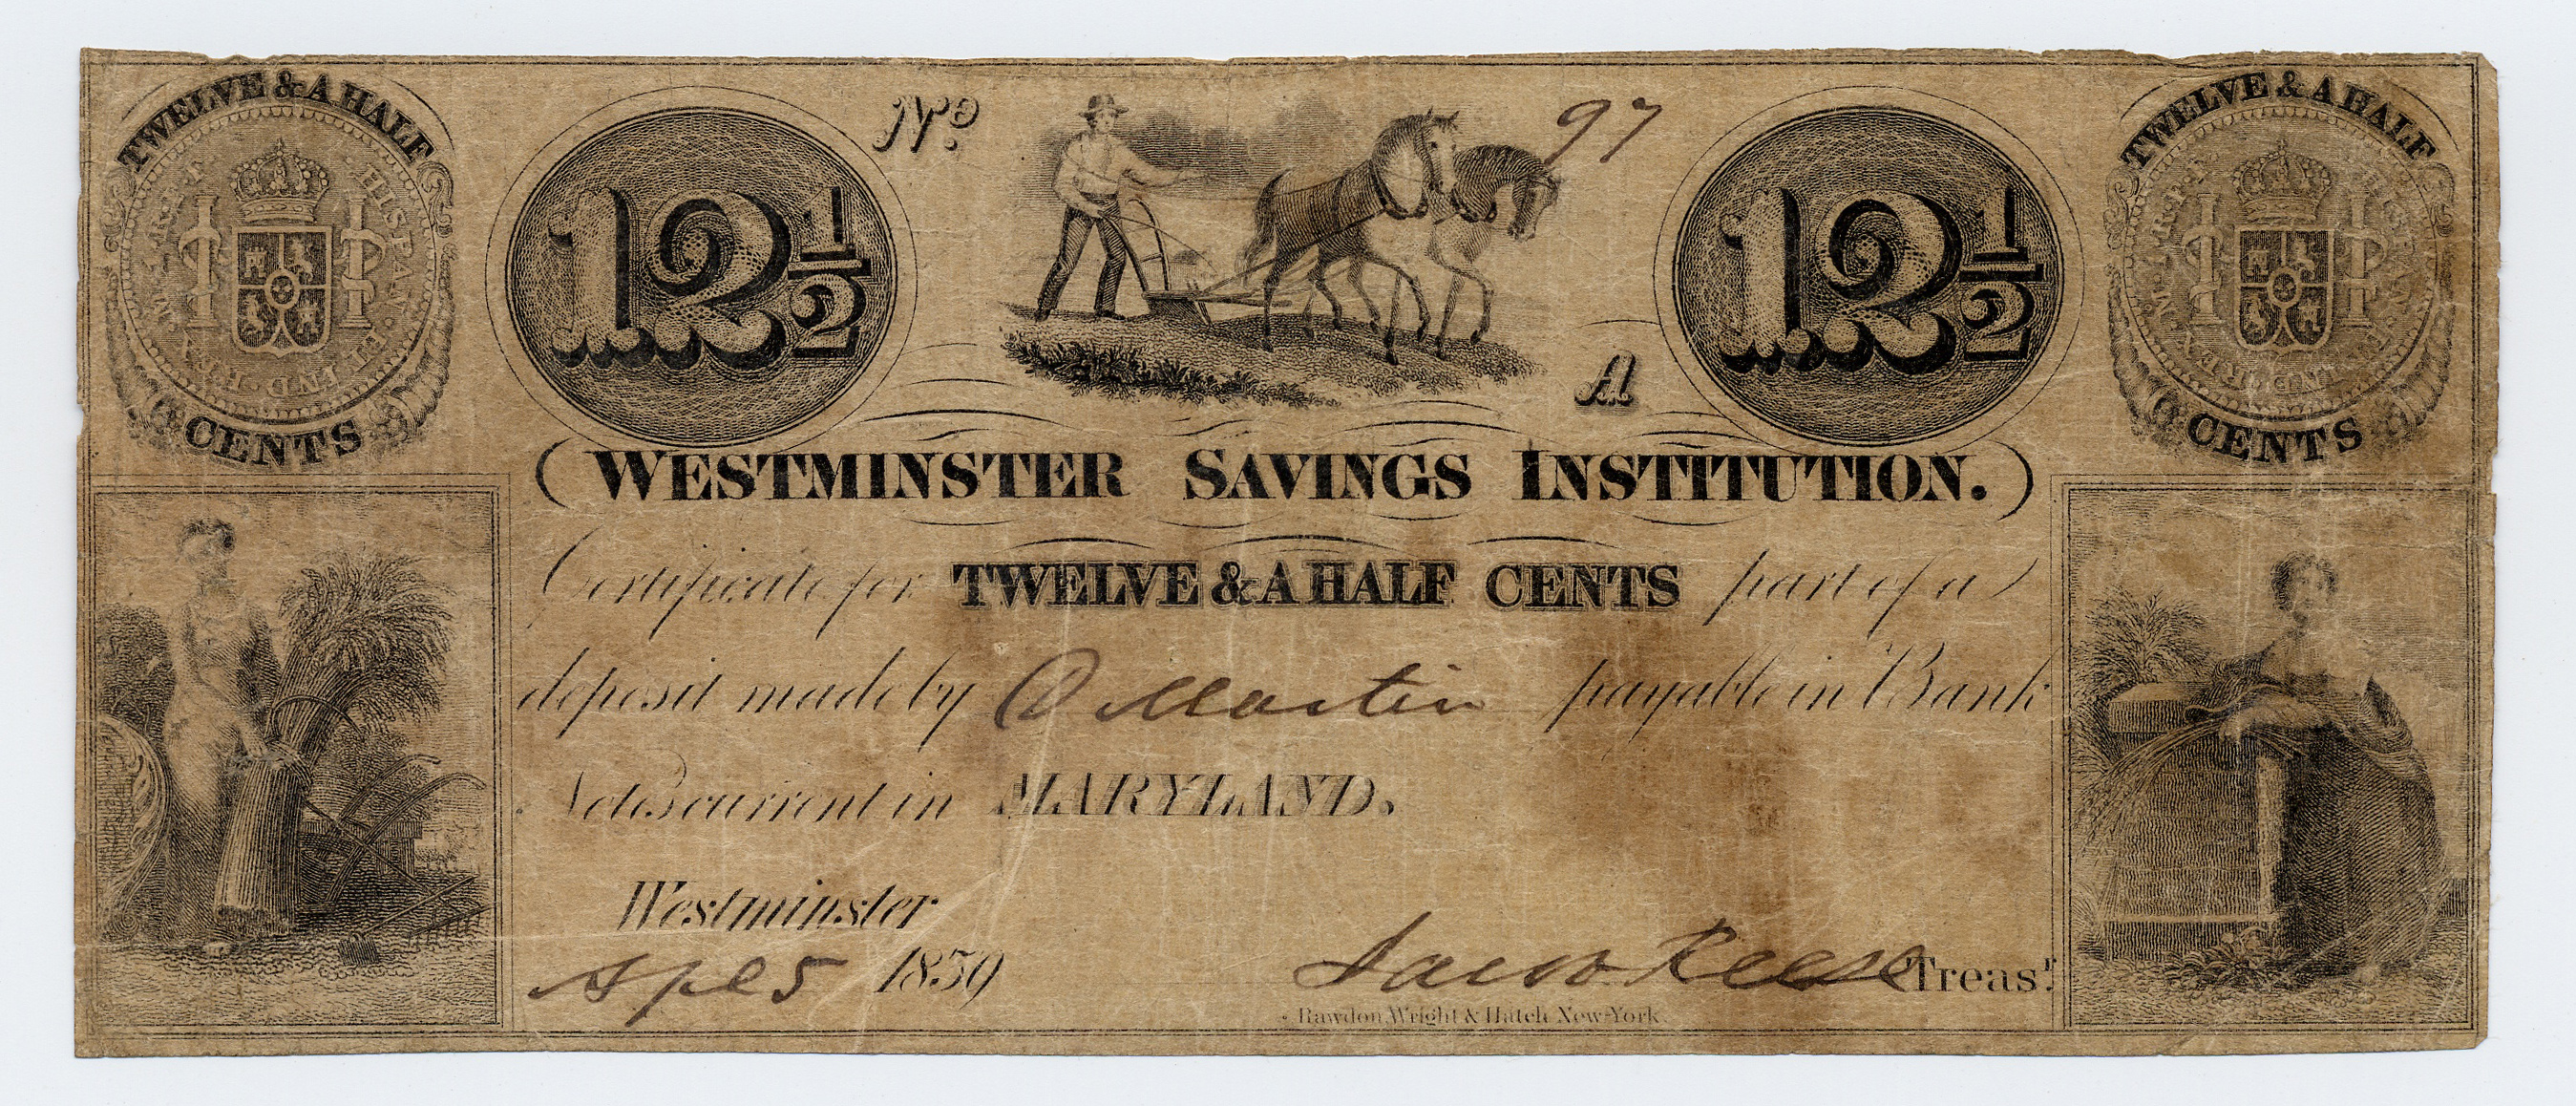 TWELVE & A HALF
M · I · R · F · T · HISPAN · ET IND · REX
CENTS
12 1/2
No. 97
A
12 1/2
TWELVE & A HALF
HISPAN · ET IND · REX
CENTS
(WESTMINSTER SAVINGS INSTITUTION.)
Certificate for TWELVE & A HALF CENTS part of a
deposit made by D Martin payable in Bank
Notes current in MARYLAND.
Westminster
Apl 5 1839
Jacob Reese Treasr.
Rawdon, Wright & Hatch New-York